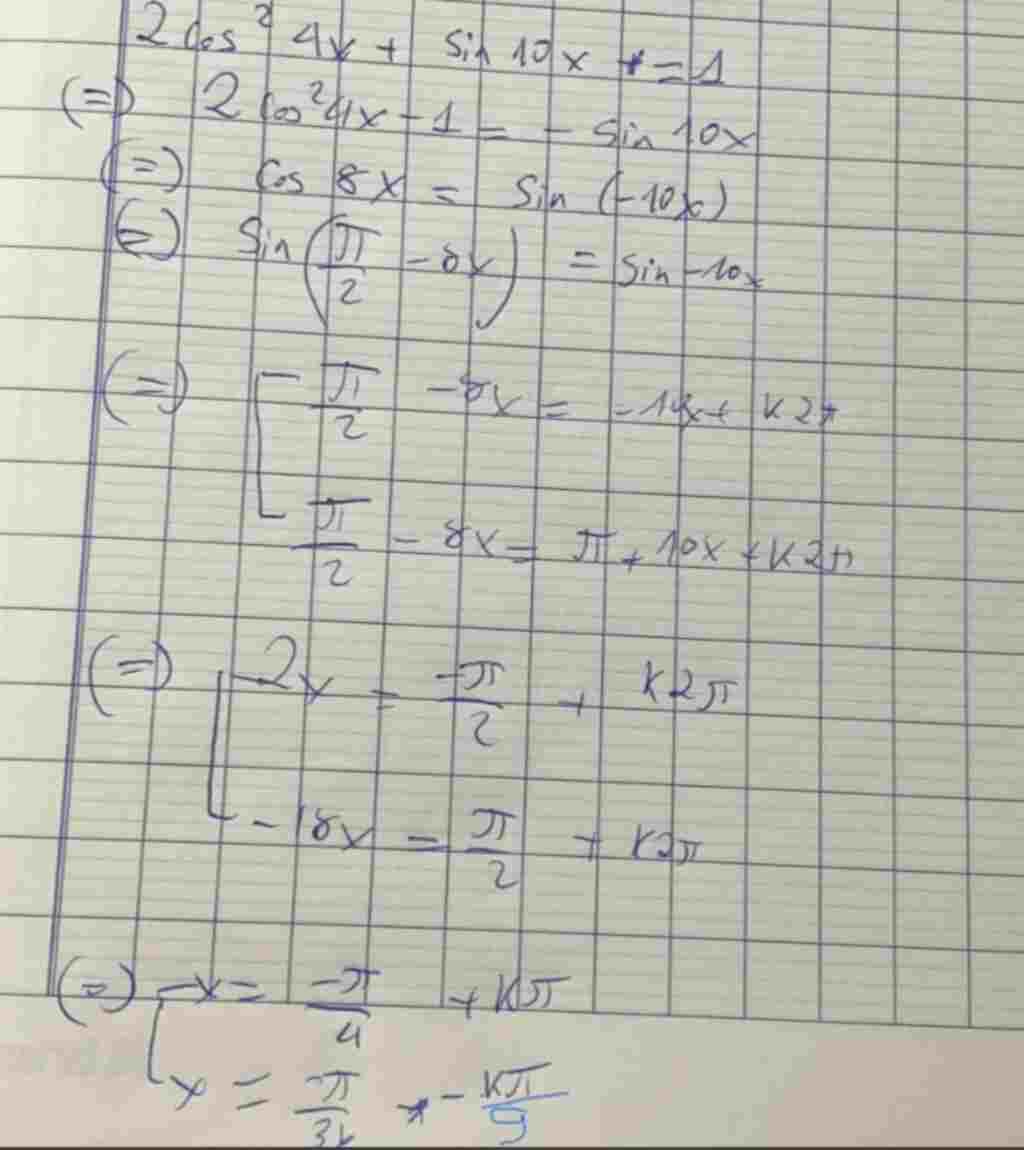 2 cos² 4x + sin 10x = 1
(=) 2 cos² 4x - 1 = - sin 10x
(=) cos 8x = sin (-10x)
(=) sin (π/2 - 8x) = sin -10x
(=) [ π/2 - 8x = -10x + k2π
π/2 - 8x = π + 10x + k2π
(=) [ 2x = -π/2 + k2π
-18x = π/2 + k2π
(=) [ x = -π/4 + kπ
x = -π/36 - kπ/9